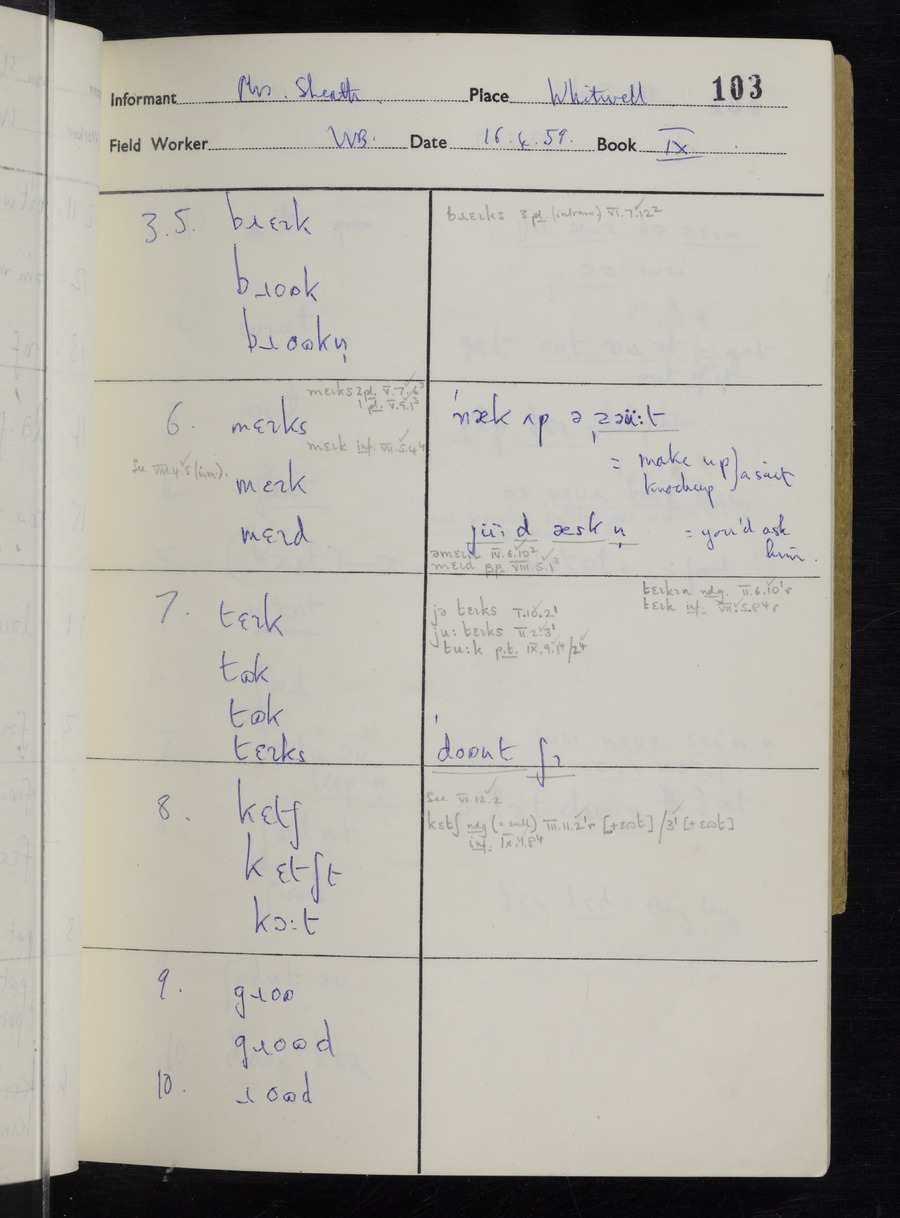 Informant Mrs. Sheath Place Whitwell 103
Field Worker WB. Date 16.4.59. Book IX
3.5. bɹɛɪk
bɹɛɪks 3 pl. (intrans) VI.7.12²
bɹoʊk
bɹoʊkn̩
mɛɪks 3 pl. V.7.6³
1 pl. V.9.1³
6. mɛɪks
mɛɪk inf. VII.5.4⁴
See VIII.4.5 (inm).
mɛɪk
mɛɪd
ˈnæk ʌp ə ˌzəü:t
= make up } a suit
knock up
jü: d æsk n̩ = you'd ask
him.
IV.6.10²
mɛɪd pp. VIII.5.1³
7. tɛɪk
tɷk
tɷk
tɛɪks
tɛɪkɪn ndg. II.6.10¹r
tɛɪk inf. VII.5.8⁴r
jə tɛɪks I.10.2¹
ju: tɛɪks II.2.3¹
tu:k p.t. IX.9.1⁴/2⁴
8. kɛtʃ
kɛtʃt
kɔ:t
See VI.12.2
kɛtʃ ndg (= cull) III.11.2¹r [+ɛɷt] / 3¹ [+ɛɷt]
inf. IX.4.8⁴
9. gɹoʊ
gɹoʊd
10. ɹoʊd